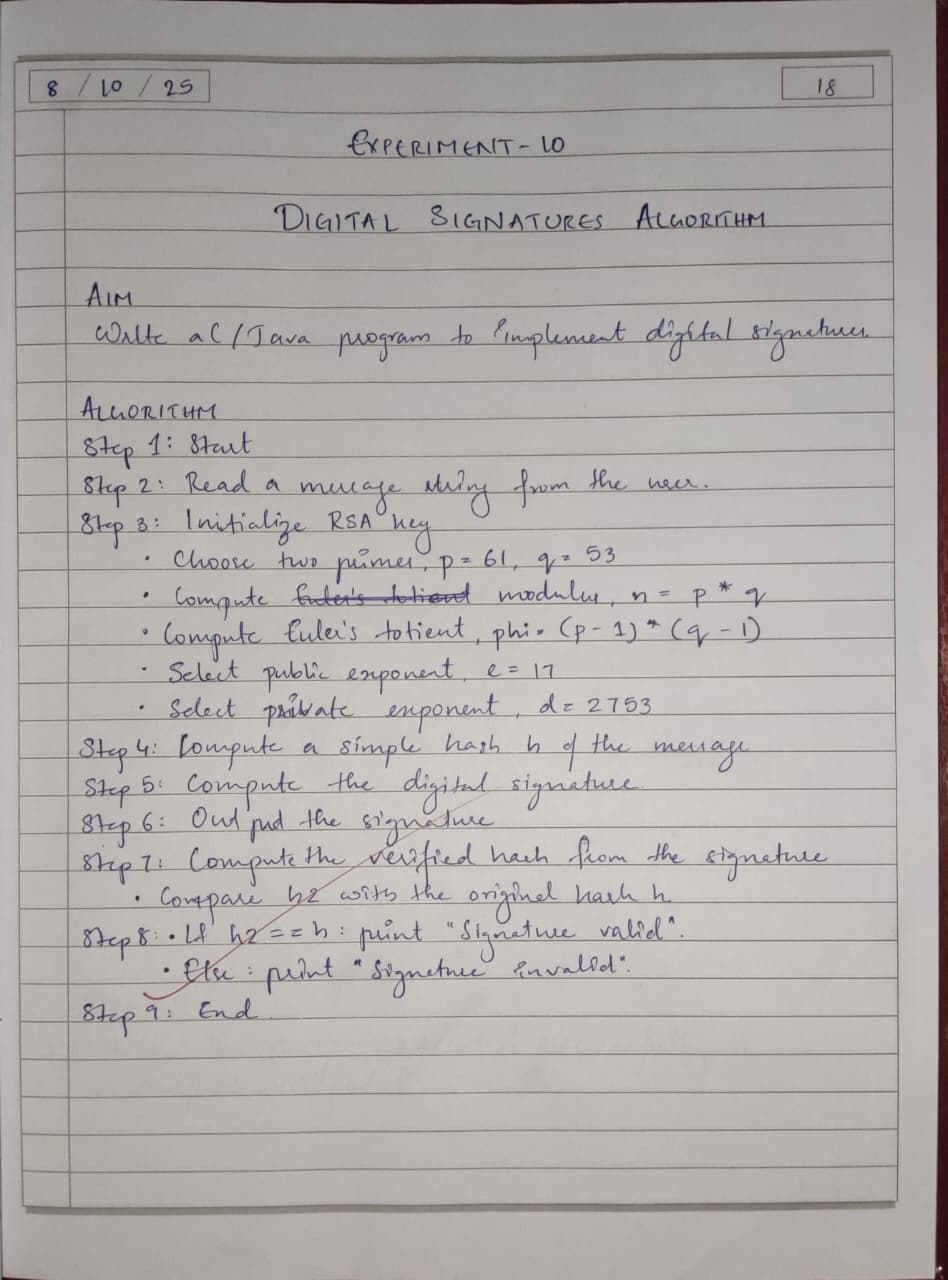 8 / 10 / 25
18
EXPERIMENT - 10
DIGITAL SIGNATURES ALGORITHM
AIM
Write a C / Java program to implement digital signatures.
ALGORITHM
Step 1: Start
Step 2: Read a message string from the user.
Step 3: Initialize RSA key
• Choose two primes, p = 61, q = 53
• Compute Euler's totient modulus, n = p * q
• Compute Euler's totient, phi = (p - 1) * (q - 1)
• Select public exponent, e = 17
• Select private exponent, d = 2753
Step 4: Compute a simple hash h of the message
Step 5: Compute the digital signature
Step 6: Output the signature
Step 7: Compute the verified hash from the signature
• Compare h2 with the original hash h
Step 8: • If h2 == h : print "Signature valid".
• Else : print "Signature invalid".
Step 9: End.